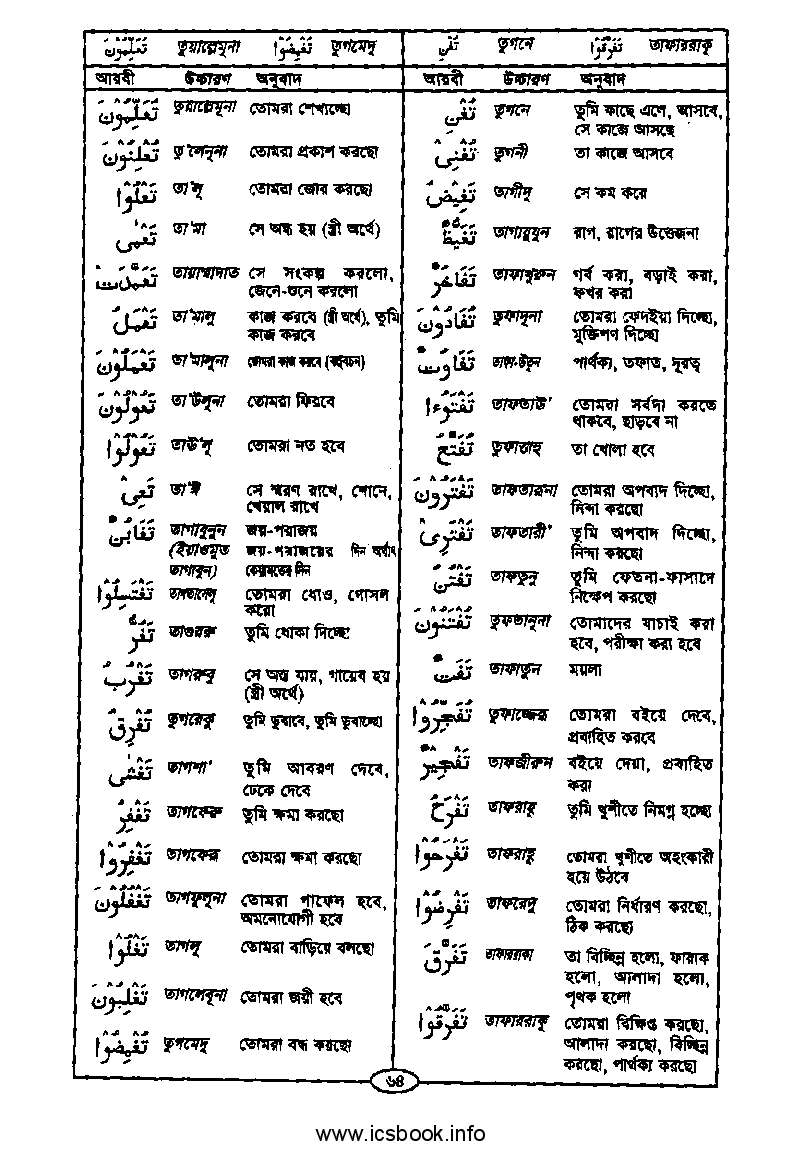 تُعَلِّمُوْنَ তুয়াল্লেমুনা تُغْمِضُوْا তুগমেদু
আরবী উচ্চারণ অনুবাদ
تُعَلِّمُوْنَ তুয়াল্লেমুনা তোমরা শেখাচ্ছো
تُعْلِنُوْنَ তু'লেনুনা তোমরা প্রকাশ করছো
تَعْلُوْا তা'লু তোমরা জোর করছো
تَعْمٰى তা'মা সে অন্ধ হয় (স্ত্রী অর্থে)
تَعَمَّدَتْ তায়াম্মাদাত সে সংকল্প করলো,
জেনে-শুনে করলো
تَعْمَلُ তা'মালু কাজ করবে (স্ত্রী অর্থে), তুমি
কাজ করবে
تَعْمَلُوْنَ তা'মালুনা তোমরা কাজ করবে (বহুবচন)
تَعُوْلُوْنَ তা'উলুনা তোমরা ফিরবে
تَعُوْلُوْا তাউ'লু তোমরা নত হবে
تَعِىْ তা'ঈ সে স্মরণ রাখে, শোনে,
খেয়াল রাখে
تَغَابُنْ তাগাবুনুন জয়-পরাজয়
(ইয়াওমুত জয়-পরাজয়ের দিন অর্থাৎ
তাগাবুন) কেয়ামতের দিন
تَغْتَسِلُوْا তাগতাসেলু তোমরা ধোও, গোসল
করো
تَغُرُّ তাগুররু তুমি ধোকা দিচ্ছো
تَغْرُبُ তাগরুবু সে অস্ত যায়, গায়েব হয়
(স্ত্রী অর্থে)
تُغْرِقُ তুগরেকু তুমি ডুবাবে, তুমি ডুবাচ্ছো
تَغْشٰى তাগশা' তুমি আবরণ দেবে,
ঢেকে দেবে
تَغْفِرُ তাগফেরু তুমি ক্ষমা করছো
تَغْفِرُوْا তাগফেরু তোমরা ক্ষমা করছো
تَغْفُلُوْنَ তাগফুলুনা তোমরা গাফেল হবে,
অমনোযোগী হবে
تَغْلُوْا তাগলু তোমরা বাড়িয়ে বলছো
تَغْلِبُوْنَ তাগলেবুনা তোমরা জয়ী হবে
تُغْمِضُوْا তুগমেদু তোমরা বন্ধ করছো
تُغْنِ তুগনে تَفَرَّقُوْا তাফাররাকু
আরবী উচ্চারণ অনুবাদ
تُغْنِ তুগনে তুমি কাছে এলে, আসবে,
সে কাজে আসছে
تُغْنِىْ তুগনী তা কাজে আসবে
تَغِيْضُ তাগীদু সে কম করে
تَغَيُّظٌ তাগায়্যুযুন রাগ, রাগের উত্তেজনা
تَفَاخُرٌ তাফাখুরুন গর্ব করা, বড়াই করা,
ফখর করা
تُفَادُوْنَ তুফাদুনা তোমরা ফেদইয়া দিচ্ছো,
মুক্তিপণ দিচ্ছো
تَفَاوُتٌ তাফা-উতুন পার্থক্য, তফাত, দূরত্ব
تَفْتَوءُا তাফতাউ' তোমরা সর্বদা করতে
থাকবে, ছাড়বে না
تُفَتَّحُ তুফাত্তাহু তা খোলা হবে
تَفْتَرُوْنَ তাফতারুনা তোমরা অপবাদ দিচ্ছো,
নিন্দা করছো
تَفْتَرِىْ তাফতারী' তুমি অপবাদ দিচ্ছো,
নিন্দা করছো
تَفْتِنُ তাফতুনু তুমি ফেতনা-ফাসাদে
নিক্ষেপ করছো
تُفْتَنُوْنَ তুফতানুনা তোমাদের যাচাই করা
হবে, পরীক্ষা করা হবে
تَفَثٌ তাফাতুন ময়লা
تُفَجِّرُوْا তুফাজ্জেরু তোমরা বইয়ে দেবে,
প্রবাহিত করবে
تَفْجِيْرٌ তাফজীরুন বইয়ে দেয়া, প্রবাহিত
করা
تَفْرَحُ তাফরাহু তুমি খুশীতে নিমগ্ন হচ্ছো
تَفْرَحُوْا তাফরাহু তোমরা খুশীতে অহংকারী
হয়ে উঠবে
تَفْرِضُوْا তাফরেদু তোমরা নির্ধারণ করছো,
ঠিক করছো
تَفَرَّقَ তাফাররাকা তা বিচ্ছিন্ন হলো, ফারাক
হলো, আলাদা হলো,
পৃথক হলো
تَفَرَّقُوْا তাফাররাকু তোমরা বিক্ষিপ্ত করছো,
আলাদা করছো, বিচ্ছিন্ন
করছো, পার্থক্য করছো
৬৪
www.icsbook.info